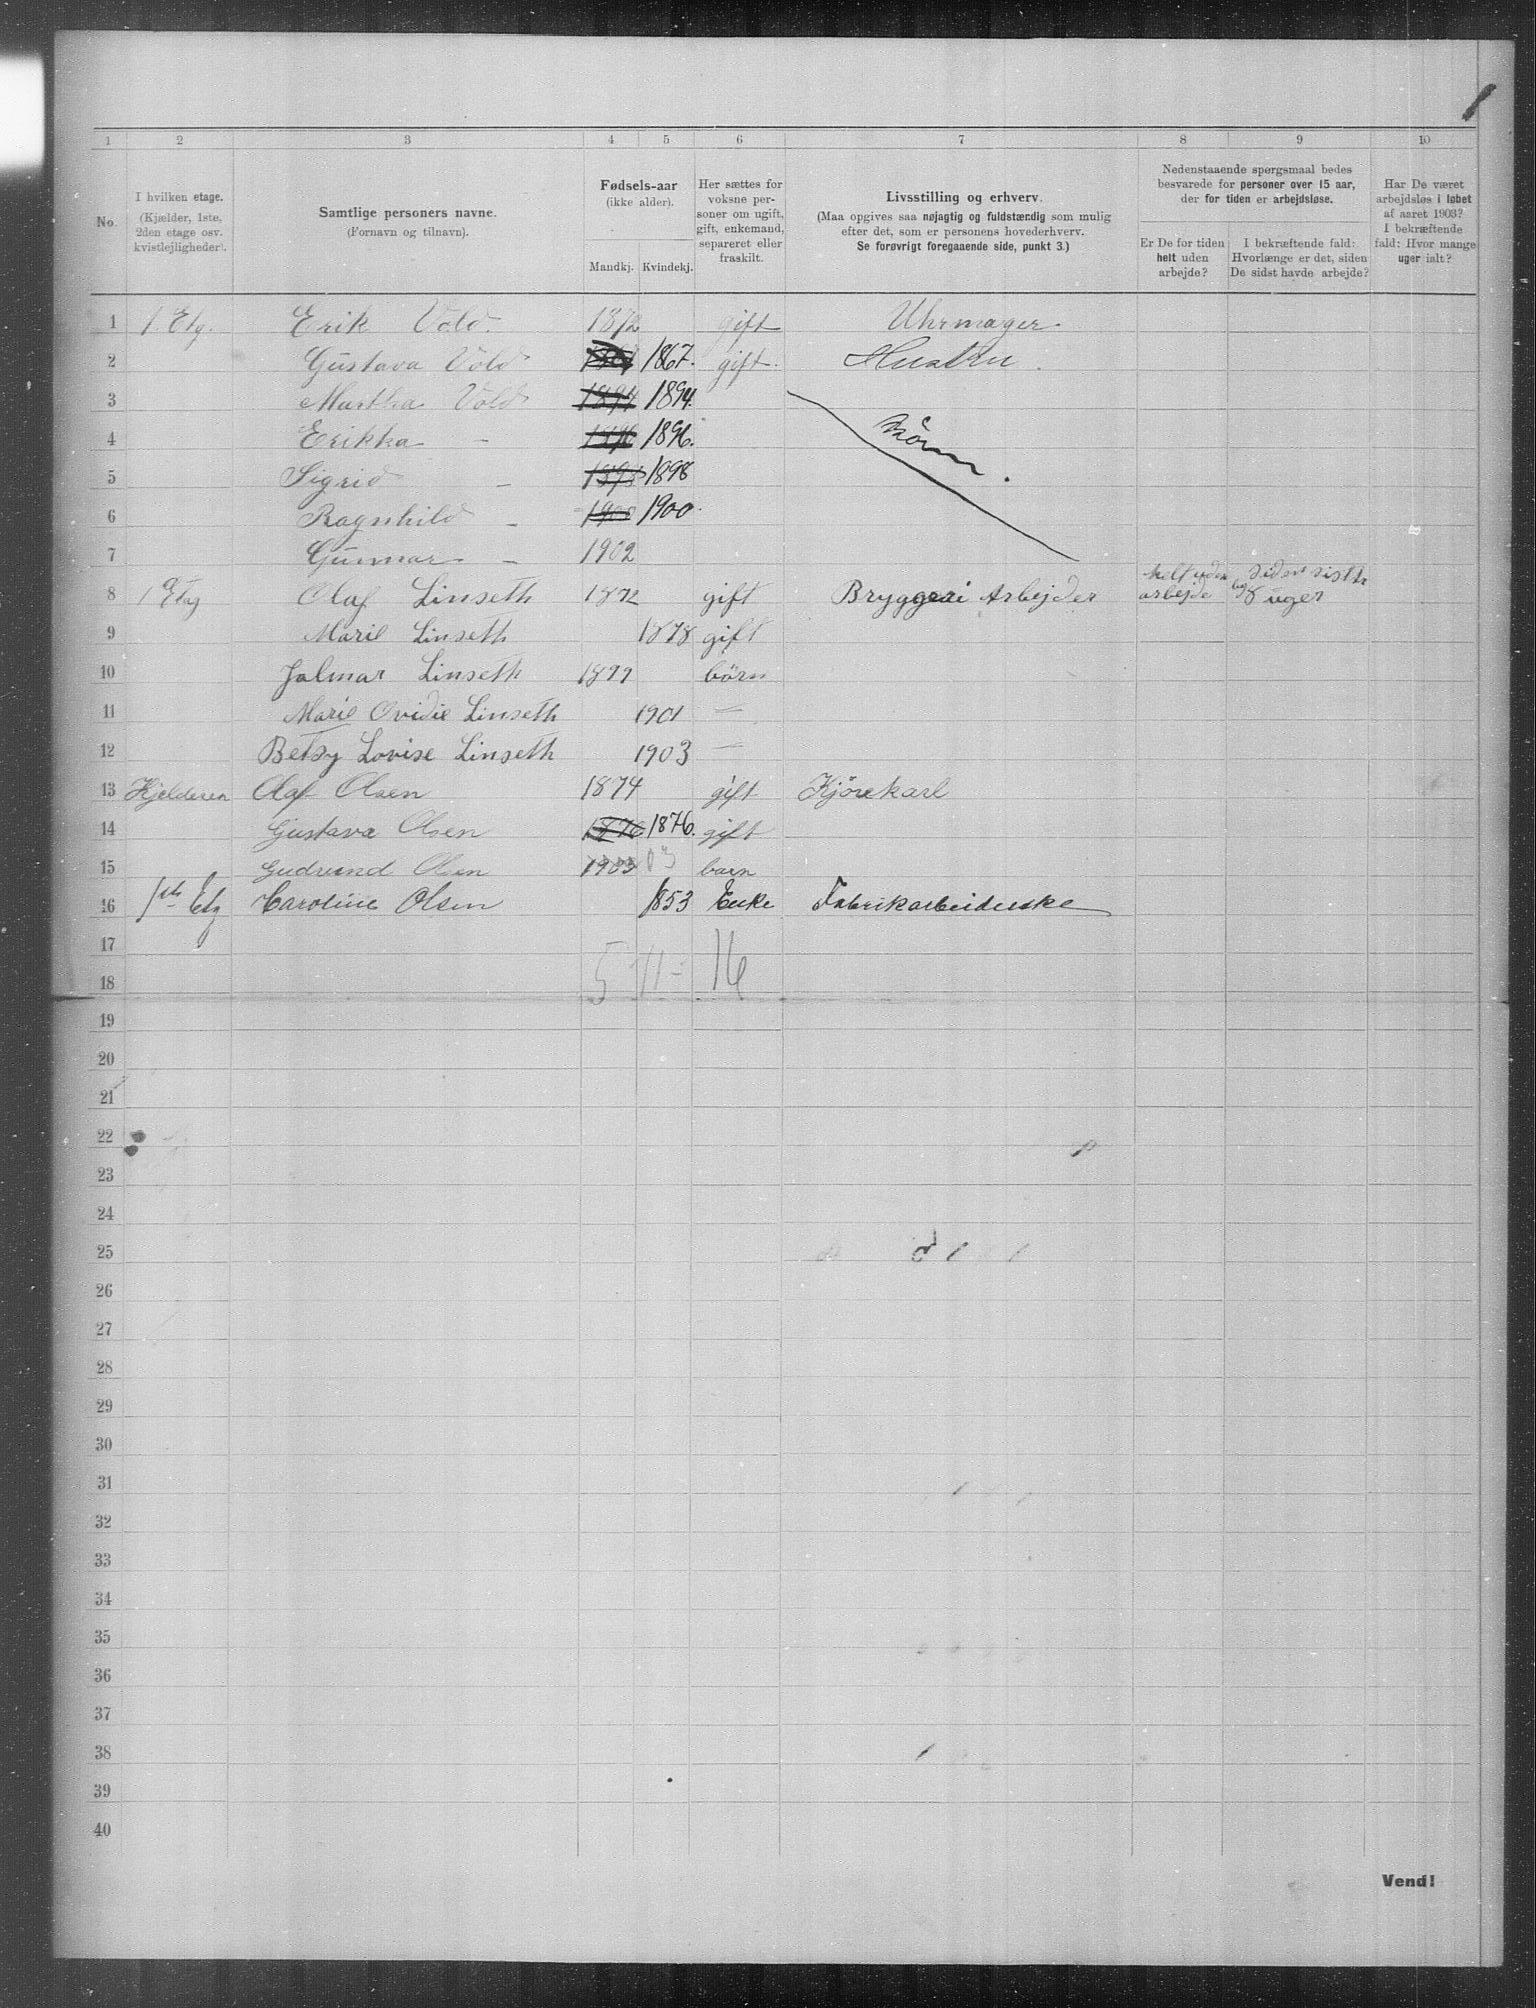 1
1 2 3 4 5 6 7 8 9 10
No.
I hvilken etage.
(Kjælder, 1ste,
2den etage osv.
kvistlejligheder).
Samtlige personers navne.
(Fornavn og tilnavn).
Fødsels-aar
(ikke alder).
Mandkj. Kvindekj.
Her sættes for
voksne per-
soner om ugift,
gift, enkemand,
separeret eller
fraskilt.
Livsstilling og erhverv.
(Maa opgives saa nøjagtig og fuldstændig som mulig
efter det, som er personens hovederhverv.
Se forøvrigt foregaaende side, punkt 3.)
Nedenstaaende spørgsmaal bedes
besvarede for personer over 15 aar,
der for tiden er arbejdsløse.
Er De for tiden
helt uden
arbejde?
I bekræftende fald:
Hvorlænge er det, siden
De sidst havde arbejde?
Har De været
arbejdsløs i løbet
af aaret 1903?
I bekræftende
fald: Hvor mange
uger ialt?
1 1. Etg. Erik Vold. 1872 gift Uhrmager.
2 Gustava Vold 1867. gift. Hustru.
3 Martha Vold 1894 1894.
4 Erikka - 1896 1896.
5 Sigrid - 1898 1898
6 Ragnhild - 1900 1900.
börn.
7 Gunnar - 1902
8 1 Etag Olaf Linseth 1872 gift Bryggeri Arbejder helt uden arbejde siden sidste 8 uger
9 Marie Linseth 1878 gift
10 Jalmar Linseth 1899 börn
11 Marie Ovidie Linseth 1901 —
12 Betsy Lovise Linseth 1903 —
13 Kjelderen Olaf Olsen 1874 gift Kjörekarl
14 Gustava Olsen 1876 1876. gift
15 Gudrund Olsen 1903 03 barn
16 1ste Etg Caroline Olsen 1853 Enke Fabrikarbeiderske
17
5 - 11 - 16
18
19
20
21
22
23
24
25
26
27
28
29
30
31
32
33
34
35
36
37
38
39
40
Vend!